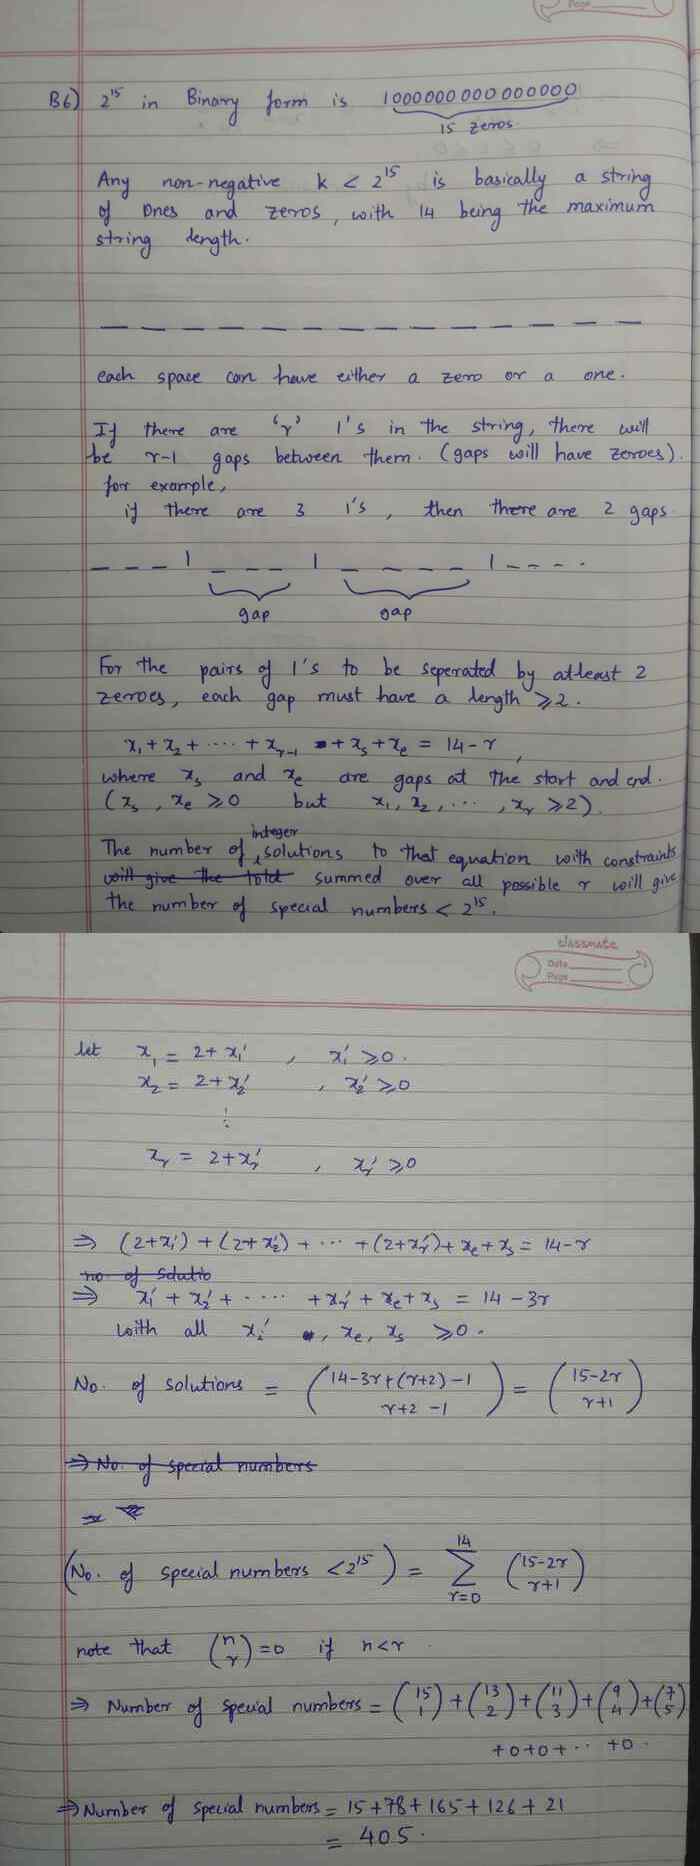 Page
B6) 2^15 in Binary form is 1000000000000000
15 zeros.
Any non-negative k < 2^15 is basically a string
of Ones and zeros, with 14 being the maximum
string length.
each space can have either a zero or a one.
If there are 'r' 1's in the string, there will
be r-1 gaps between them. (gaps will have zeroes).
for example,
if there are 3 1's, then there are 2 gaps.
_ _ _ 1 _ _ _ 1 _ _ _ _ 1 - - - -
gap gap
For the pairs of 1's to be seperated by atleast 2
zeroes, each gap must have a length ⩾ 2.
x₁ + x₂ + ···· + xᵣ₋₁ + xₛ + xₑ = 14 - r,
where xₛ and xₑ are gaps at the start and end.
(xₛ, xₑ ⩾ 0 but x₁, x₂, ···, xᵣ ⩾ 2).
The number of integer solutions to that equation with constraints
will give the total summed over all possible r will give
the number of special numbers < 2^15.
classmate
Date
Page
let x₁ = 2 + x₁', x₁' ⩾ 0.
x₂ = 2 + x₂', x₂' ⩾ 0
⋮
xᵣ = 2 + xᵣ', xᵣ' ⩾ 0
⇒ (2+x₁') + (2+x₂') + ··· + (2+xᵣ') + xₑ + xₛ = 14 - r
no. of solutio
⇒ x₁' + x₂' + ····· + xᵣ' + xₑ + xₛ = 14 - 3r
with all xᵢ', xₑ, xₛ ⩾ 0.
No. of solutions = (14-3r+(r+2)-1 r+2-1) = (15-2r r+1)
⇒ No. of special numbers
⇒
(No. of special numbers < 2^15) = 14 ∑ r=0 (15-2r r+1)
note that (n r) = 0 if n < r.
⇒ Number of special numbers = (15 1) + (13 2) + (11 3) + (9 4) + (7 5)
+0+0+ ·· +0.
⇒ Number of special numbers = 15 + 78 + 165 + 126 + 21
= 405.